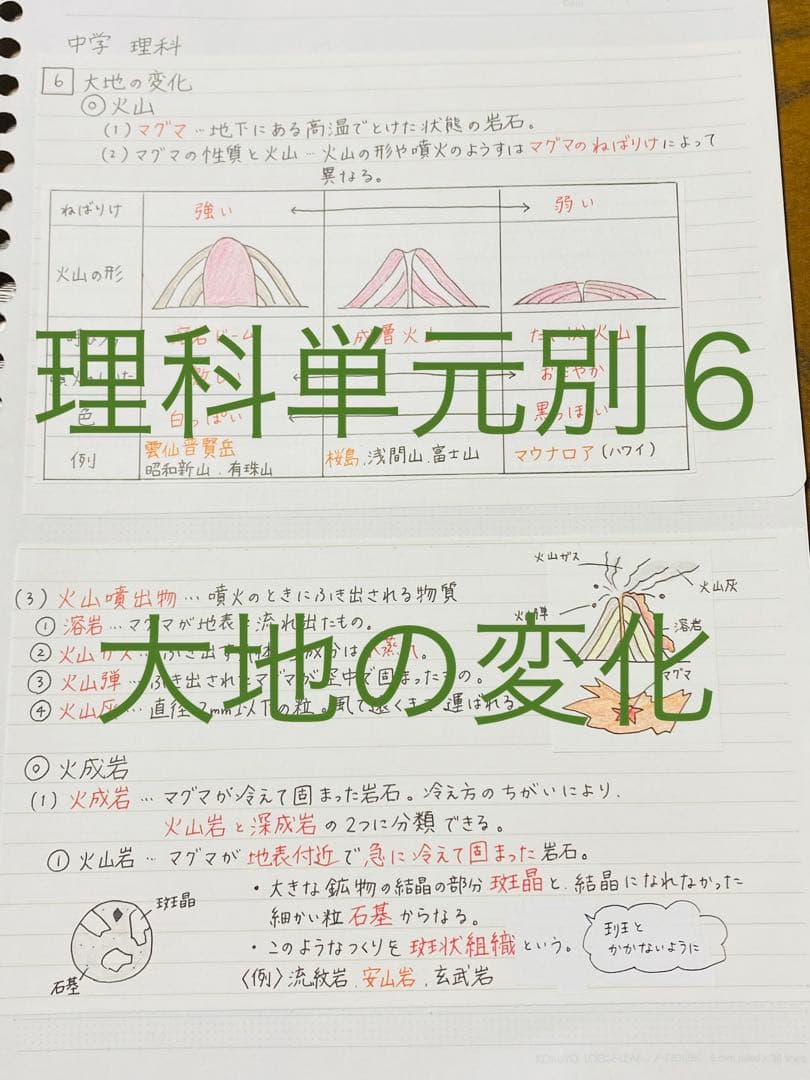 中学 理科
6 大地の変化
◎火山
(1) マグマ…地下にある高温でとけた状態の岩石。
(2) マグマの性質と火山…火山の形や噴火のようすはマグマのねばりけによって
異なる。
ねばりけ 強い 弱い
火山の形
成層火山 火山
理科単元別6
激しい おだやか
色 白っぽい 黒っぽい
例 雲仙普賢岳 昭和新山、有珠山 桜島、浅間山、富士山 マウナロア(ハワイ)
火山ガス
火山灰
溶岩
マグマ
(3) 火山噴出物…噴火のときにふき出される物質
① 溶岩…マグマが地表に流れ出たもの。
② 火山ガス…
③ 火山弾…ふき出されたマグマが空中で固まったもの。
④ 火山灰…直径2mm以下の粒。風で遠くまで運ばれる
大地の変化
◎火成岩
(1) 火成岩…マグマが冷えて固まった岩石。冷え方のちがいにより、
火山岩と深成岩の2つに分類できる。
① 火山岩…マグマが地表付近で急に冷えて固まった岩石。
斑晶
石基
・大きな鉱物の結晶の部分斑晶と、結晶になれなかった
細かい粒石基からなる。
・このようなつくりを斑状組織という。
〈例〉流紋岩、安山岩、玄武岩
かかないように